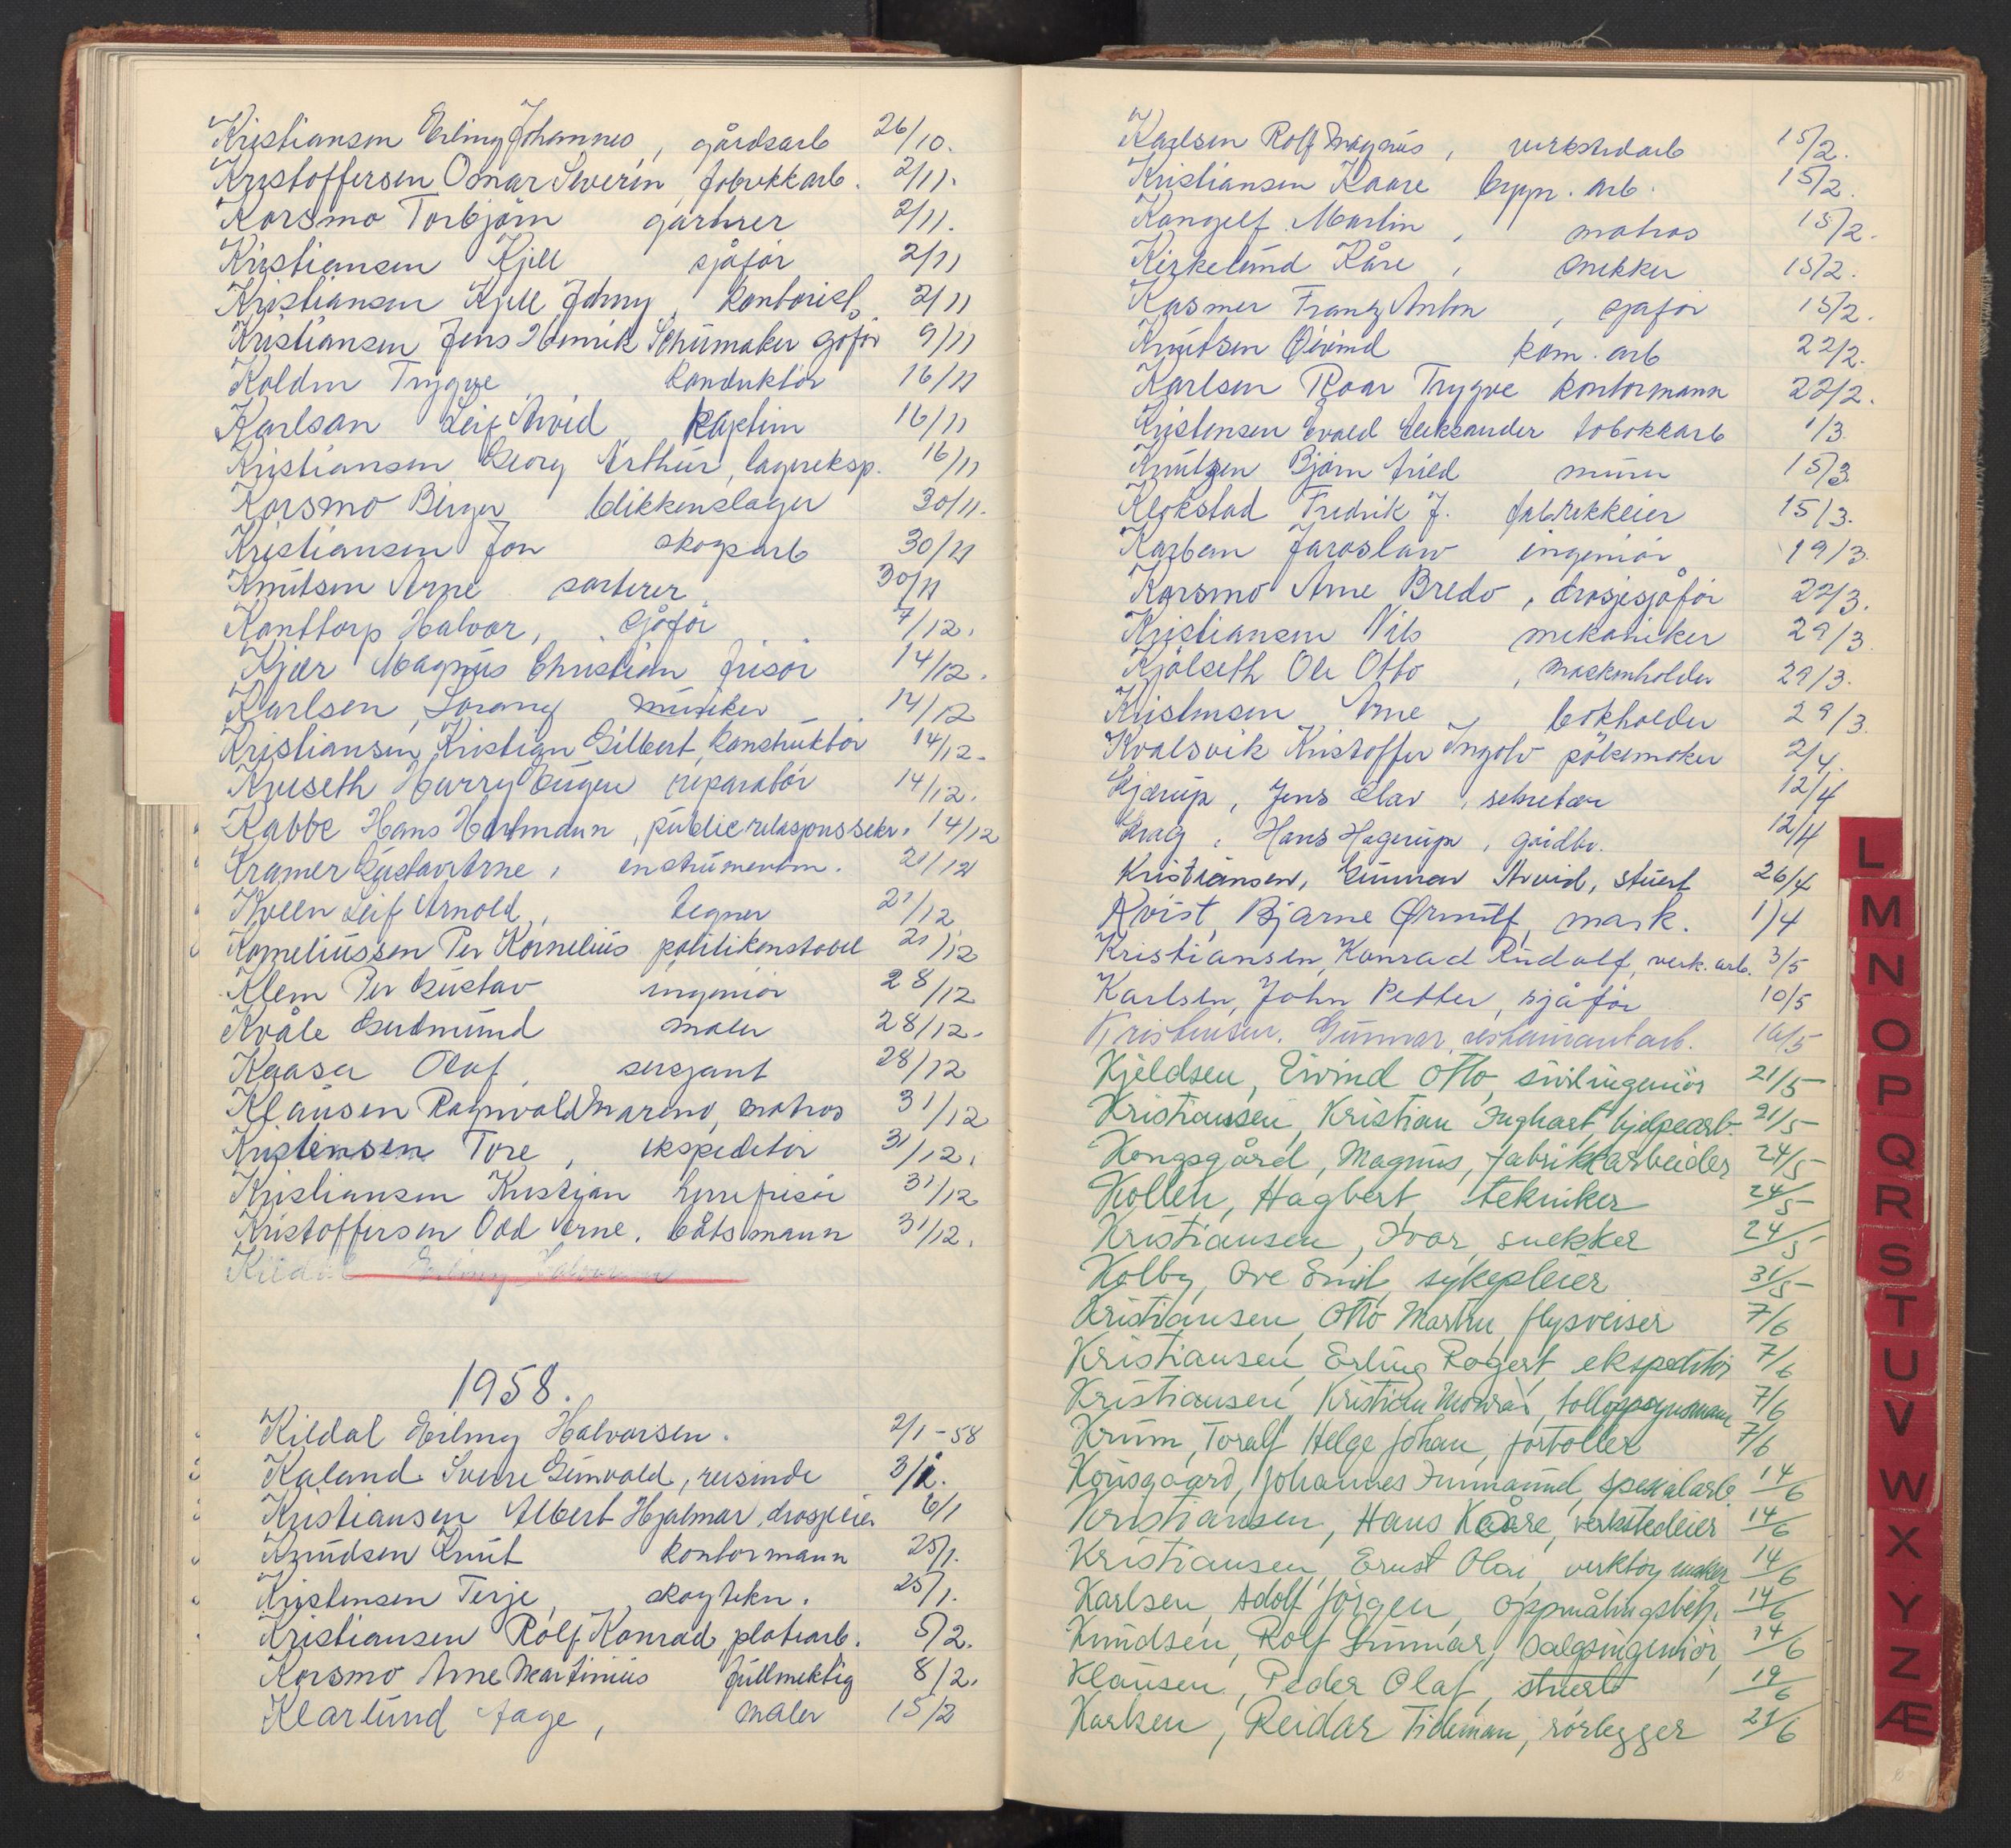 Kristiansen Erling Johannes, gårdsarb 26/10.
Kristoffersen Osnar Severin, fabrikkarb. 2/11.
Korsmo Torbjörn gartner 2/11.
Kristiansen Kjell sjåför 2/11
Kristiansen Kjell Johny, kontorist, 2/11
Kristiansen Jens Henrik Schumaker sjåför 9/11
Koldin Trygve, konduktör 16/11
Karlsan Leif Arvid kaptein 16/11
Kristiansen Georg Arthur, lagereksp. 16/11
Korsmo Birger blikkenslager 30/11.
Kristiansen Jon skogsarb 30/11
Knutsen Arne sorterer 30/11
Kanttorp Halvor, sjåför 7/12.
Kjær Magnus Christian frisör 14/12.
Karlsen, Lorang musiker 14/12
Kristiansen, Kristian Gilbert, konstruktör 14/12.
Kveseth Harry Eugen reparatör 14/12.
Kabbe Hans Hartmann, public relasjonssekr. 14/12
Kramer Gustav Arne, instrumentm. 21/12
Kveen Leif Arnold, tegner 21/12
Korneliussen Per Kornelius politikonstabel 21/12
Klem Per Gustav ingeniör 28/12
Kvåle Gudmund maler 28/12.
Kaasa Olaf, sersjant 28/12
Klausen Ragnvald Mareno, matros 31/12
Kristensen Tore, ekspeditör 31/12.
Kristiansen Kristian herrefrisör 31/12
Kristoffersen Odd Arne, båtsmann 31/12.
Kildal Erling Halvorsen
1958.
Kildal Erling Halvorsen. 2/1-58
Kaland Sverre Gunvald, reisende 3/1.
Kristiansen Albert Hjalmar, drosjeeier 6/1
Knudsen Knut kontormann 25/1.
Kristensen Terje, skogtekn. 25/1.
Kristiansen Rolf Konrad, platearb. 5/2.
Korsmo Arne Martinius fullmektig 8/2.
Klarlund Aage, maler 15/2
Karlsen Rolf Magnus, verkstedarb 15/2.
Kristiansen Kaare bygn. arb. 15/2.
Kongelf Martin, matros 15/2.
Kirkelund Kåre, snekker 15/2.
Kasmer Franz Anton, sjåför 15/2.
Knutsen Öivind kom. arb 22/2.
Karlsen Roar Trygve kontormann 22/2.
Kristensen Evald Aleksander tobakkarb 1/3.
Knutzen Björn Arild murer 15/3
Klokstad Fredrik J. fabrikkeier 15/3.
Karban Jaroslaw ingeniör 19/3.
Korsmo Arne Bredo, drosjesjåför 22/3.
Kristiansen Nils mekaniker 29/3
Kjölseth Ole Otto, maskinholder 29/3.
Kristensen Arne, bokholder 29/3.
Kvalsvik Kristoffer Ingolv pölsemaker 2/4.
Kjærup, Jens Olav, sekretær 12/4
Krag, Hans Hagerup, gårdbr. 12/4
Kristiansen, Gunnar Arvid, stuert 26/4
Kvist, Bjarne Ørnulf, mask. 1/4
Kristiansen, Konrad Rudolf, verk. arb. 3/5
Karlsen, John Petter, sjåför 10/5
Kristensen, Gunnar, restaurantarb. 16/5
Kjeldsen, Eivind Otto, sivilingeniör 21/5
Kristiansen, Kristian Inghart, hjelpearb. 21/5
Kongsgård, Magnus, fabrikkarbeider 24/5
Kollen, Hagbert, tekniker 24/5
Kristiansen, Ivar, snekker 24/5
Kolby, Ove Emil, sykepleier 31/5
Kristiansen, Otto Martin, flysveiser 7/6
Kristiansen, Erling Rogert, ekspeditör 7/6
Kristiansen, Kristian Monrad, tolloppsynsmann 7/6
Krum, Toralf Helge Johan, fortoller 7/6
Kongsgaard, Johannes Immanuel, spesialarb. 14/6
Kristiansen, Hans Kåre, verkstedeier 14/6
Kristiansen, Ernst Olai, verktøymaker 14/6
Karlsen, Adolf Jörgen, oppmålingsbetj. 14/6
Knudsen, Rolf Gunnar, salgsingeniör, 14/6
Klausen, Peder Olaf, stuert 19/6
Karlsen, Reidar Tideman, rörlegger 21/6
L
M
N
O
P
Q
R
S
T
U
V
W
X
Y
Z
Æ